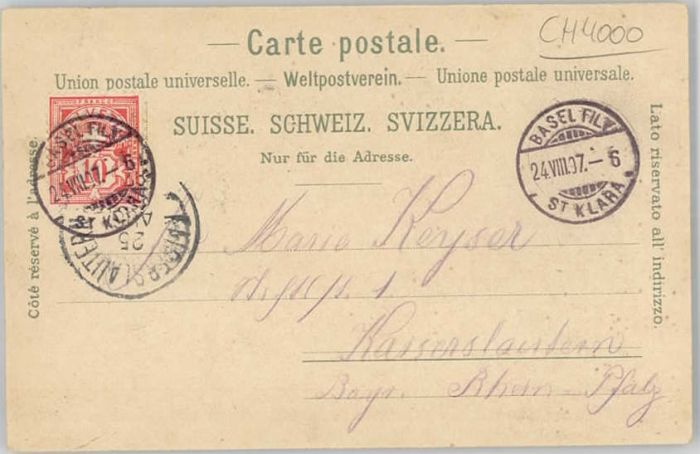 CH4000
— Carte postale. —
Union postale universelle. — Weltpostverein. — Unione postale universale.
SUISSE. SCHWEIZ. SVIZZERA.
Nur für die Adresse.
Côté réservé à l'adresse.
Lato riservato all' indirizzo.
FRANCO
10
BASEL FIL.
24.VIII.97.–6
ST KLARA
BASEL FIL.
24.VIII.97.–6
ST KLARA
25
Marie Keyser
1
Kaiserslautern
Bayr. Rhein-Pfalz